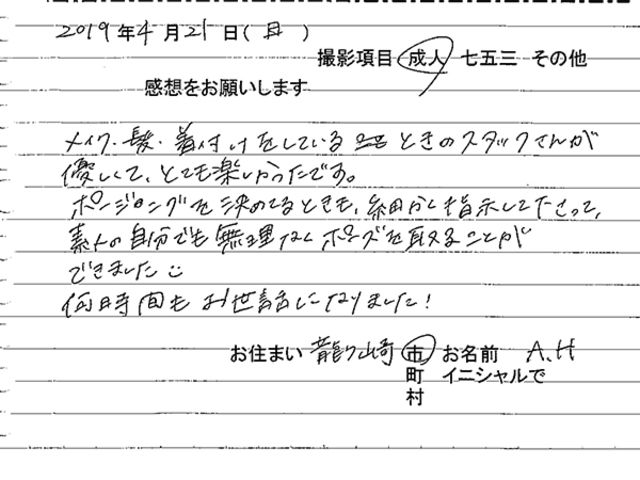 2019年4月21日(日)
撮影項目 成人 七五三 その他
感想をお願いします
メイク・髪・着付けをしている ときのスタッフさんが
優しくて、とても楽しかったです。
ポージングを決めてるときも、細かく指示して下さって、
素人の自分でも無理なくポーズを取ることが
できました
何時間もお世話になりました!
お住まい 龍ケ崎 市 お名前 A.H
町 イニシャルで
村